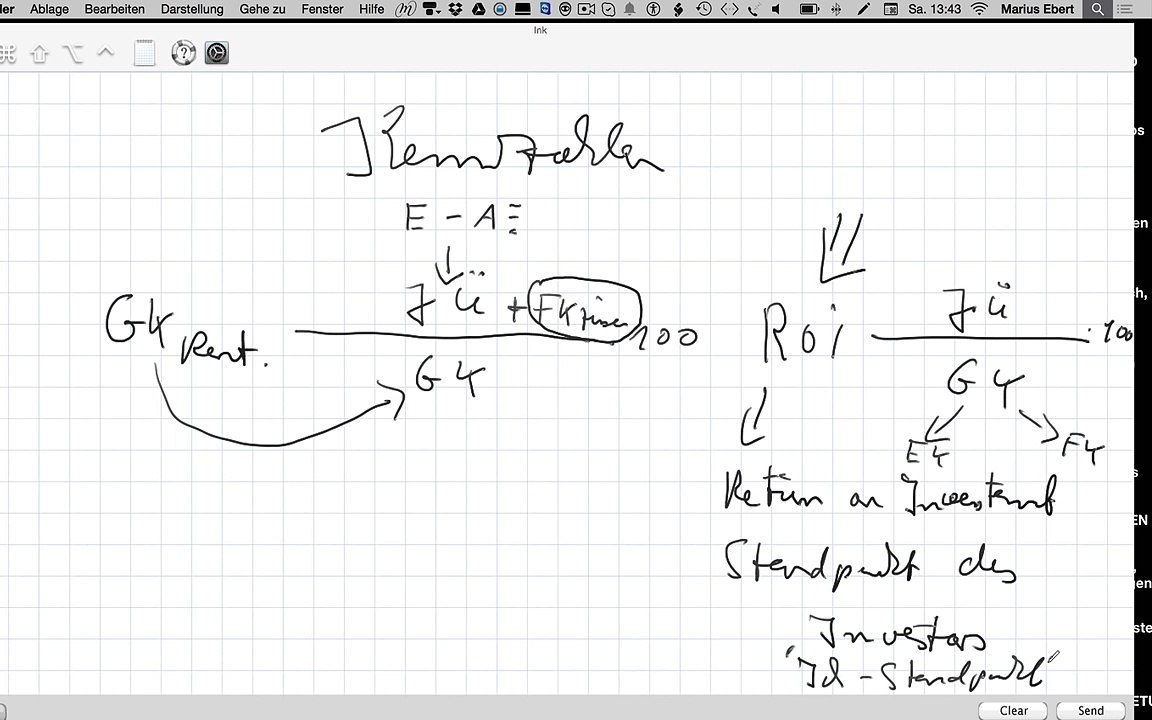 ler Ablage Bearbeiten Darstellung Gehe zu Fenster Hilfe Sa. 13:43 Marius Ebert
Ink
Kennzahlen
E - A
JÜ + FKzinsen
GK Rent. 100
GK
JÜ
RoI · 100
GK
EK FK
Return on Investment
Standpunkt des
Investors
"Ich - Standpunkt"
Clear Send